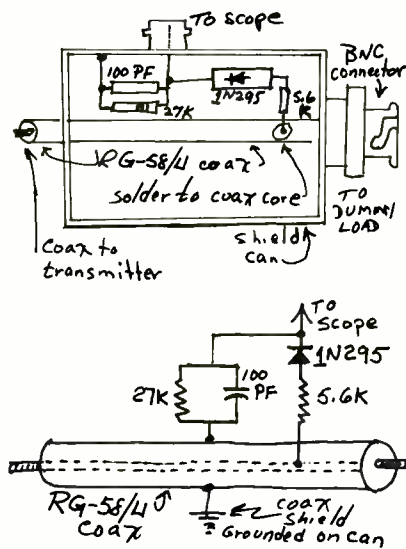 TO Scope
BNC
connector
100 PF
1N295
5.6
K
27K
RG-58/4 coax
solder to coax core
TO
DUMMY
LOAD
shield
can
Coax to
transmitter
TO
Scope
1N295
27K
100
PF
5.6K
RG-58/4
coax
coax
shield
Grounded on can